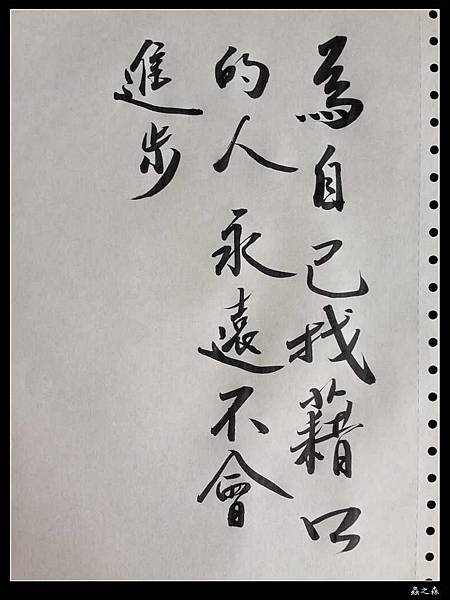 為自己找藉口
的人永遠不會
進步
蟲之森